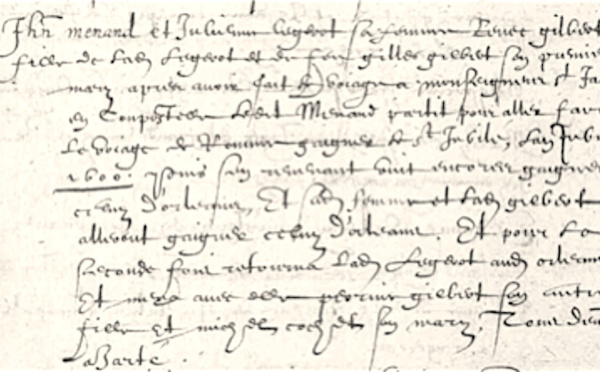 Jhn menand et Julienne legerot sa femme Renee gilbert
fille de lad Legerot et de feu gilles gilbert son premier
mary apres avoir fait le voiage a monseigneur st Ja
en Compostelle ledit Menand partit pour aller fair
le voiage de Romme gaigner le st Jubile, lan Jub
1600. son revenant vint encores gaigner
celluy d'orleans, Et sad femme et lad gilbert
allerent gaigner celluy d'orleans. Et pour la
seconde fois retourna lad Legerot aud orleans
Et mena avec elle perrine gilbert son autre
fille et michel cochet son mary.